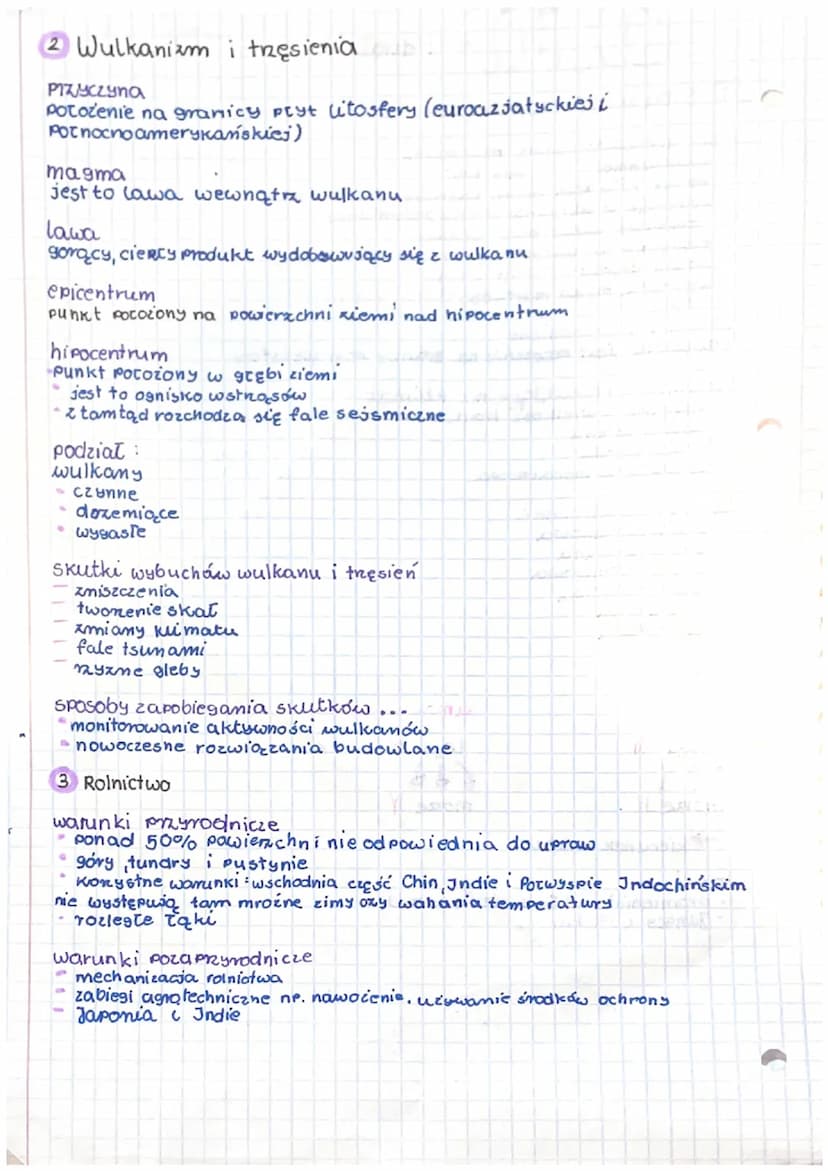 2 Wulkanizm i trzęsienia
Przyczyna
położenie na granicy płyt litosfery (euroazjatyckiej i
północnoamerykańskiej)
magma
jest to lawa wewnątrz wulkanu
lawa
gorący, ciekły produkt wydobywający się z wulkanu
epicentrum
punkt położony na powierzchni ziemi nad hipocentrum
hipocentrum
punkt położony w głębi ziemi
jest to ognisko wstrząsów
z tamtąd rozchodzą się fale sejsmiczne
podział :
wulkany
czynne
drzemiące
wygasłe
skutki wybuchów wulkanu i trzęsień
- zniszczenia
- tworzenie skał
- zmiany klimatu
- fale tsunami
- żyzne gleby
sposoby zapobiegania skutków ...
monitorowanie aktywności wulkanów
nowoczesne rozwiązania budowlane
3 Rolnictwo
warunki przyrodnicze
ponad 50% powierzchni nie odpowiednia do upraw
góry, tundry i pustynie
korzystne warunki: wschodnia część Chin, Indie i Półwyspie Indochińskim
nie występują tam mroźne zimy ozy wahania temperatury
- rozległe łąki
warunki pozaprzyrodnicze
- mechanizacja rolnictwa
- zabiegi agrotechniczne np. nawożenie, używanie środków ochrony
- Japonia i Indie